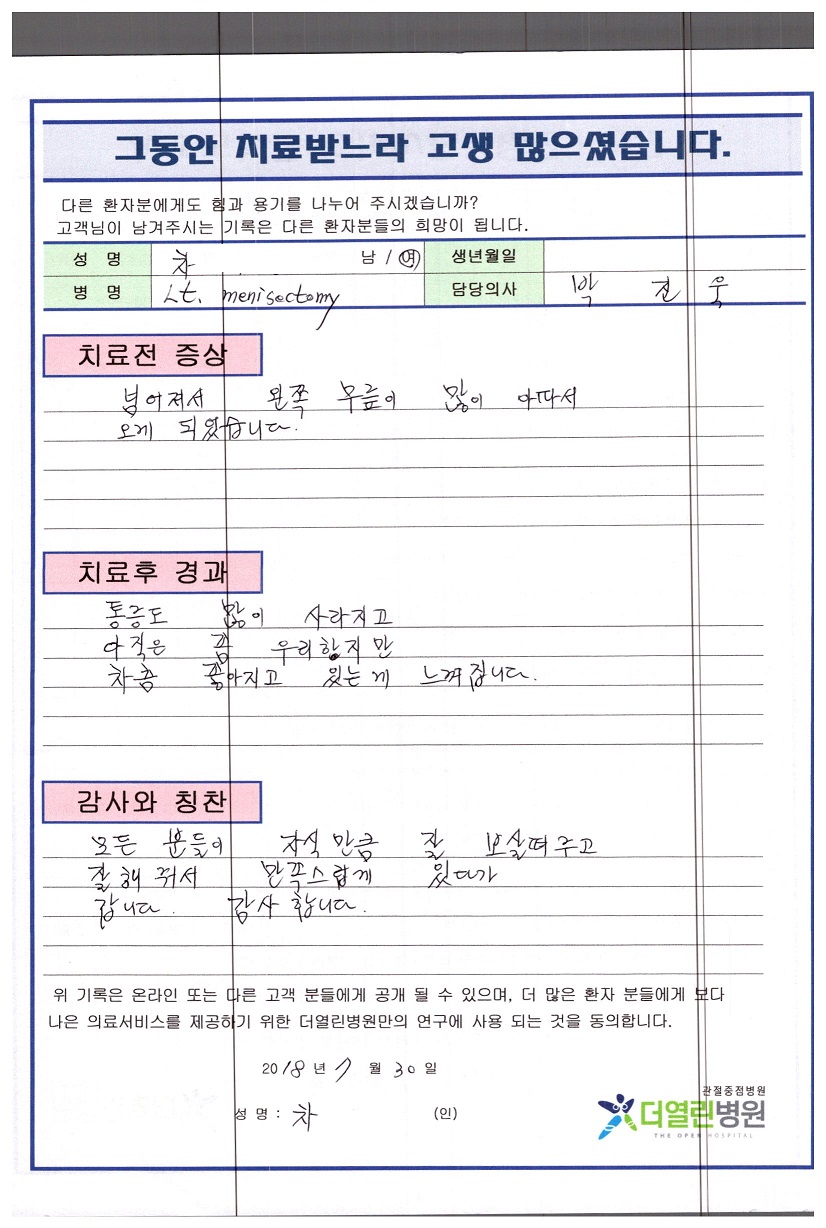 그동안 치료받느라 고생 많으셨습니다.
다른 환자분에게도 힘과 용기를 나누어 주시겠습니까?
고객님이 남겨주시는 기록은 다른 환자분들의 희망이 됩니다.
성 명 차 남 / 여 생년월일
병 명 Lt. menisectomy 담당의사 박 진 욱
치료전 증상
넘어져서 왼쪽 무릎이 많이 아파서
오게 되었습니다.
치료후 경과
통증도 많이 사라지고
아직은 좀 우리하지만
차츰 좋아지고 있는게 느껴집니다.
감사와 칭찬
모든 분들이 자식만큼 잘 보살펴주고
잘해줘서 만족스럽게 있다가
갑니다. 감사합니다.
위 기록은 온라인 또는 다른 고객 분들에게 공개 될 수 있으며, 더 많은 환자 분들에게 보다
나은 의료서비스를 제공하기 위한 더열린병원만의 연구에 사용 되는 것을 동의합니다.
2018 년 7 월 30 일
성 명 : 차 (인)
관절중점병원
더열린병원
THE OPEN HOSPITAL